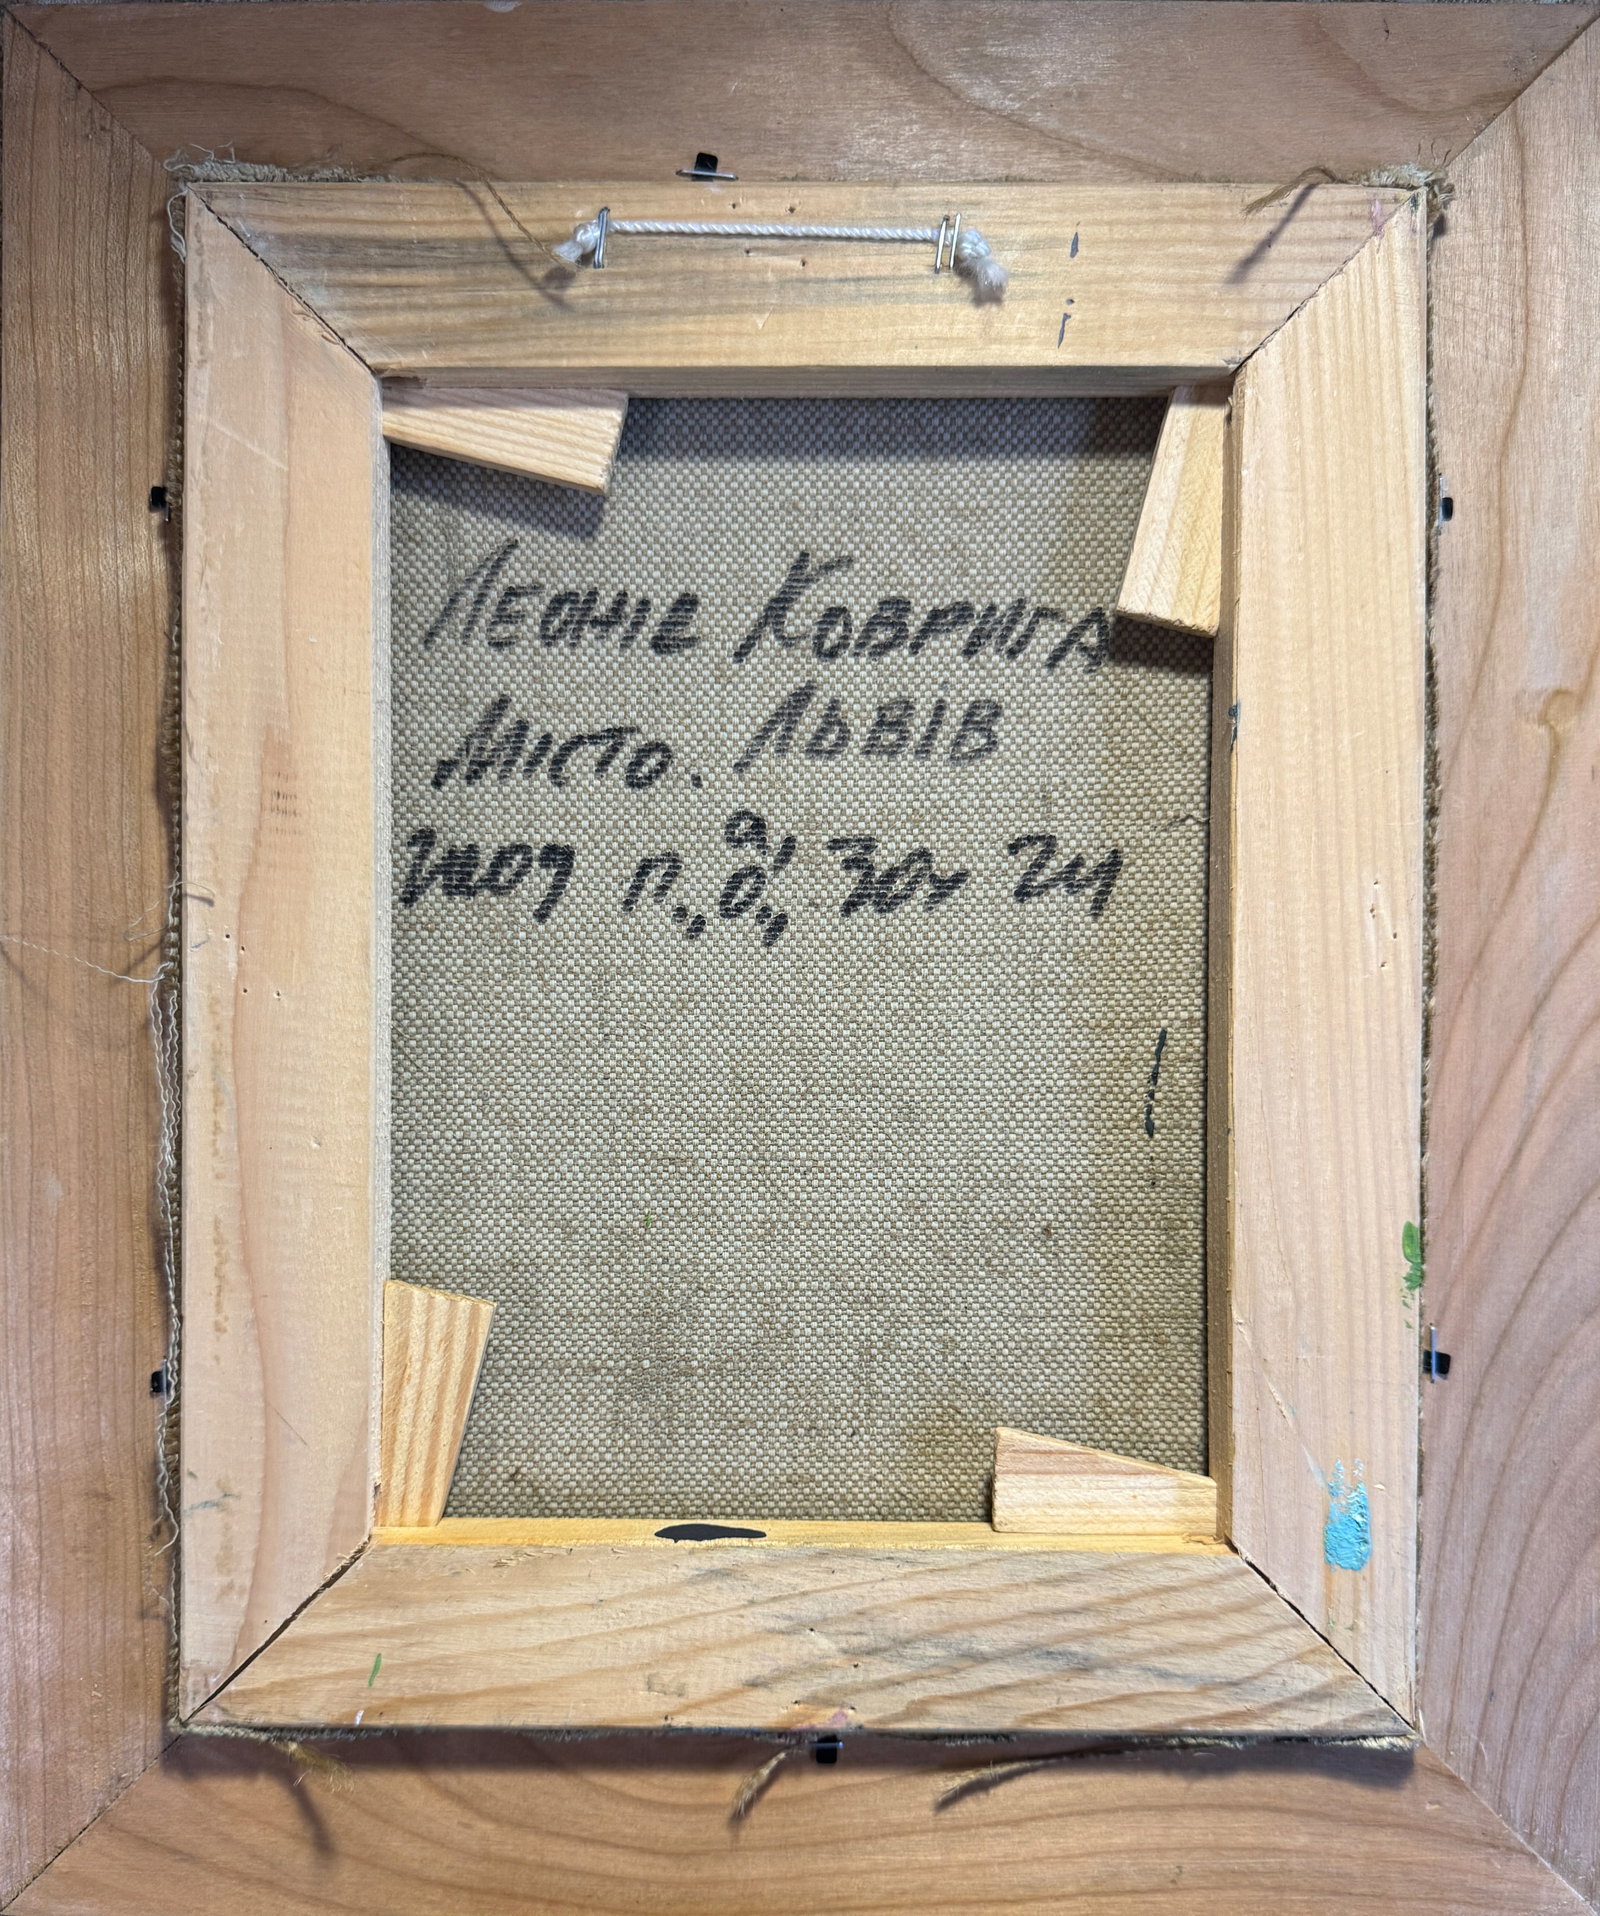 Леонід Коврига
Місто. Львів
2009 п., о., 30x24